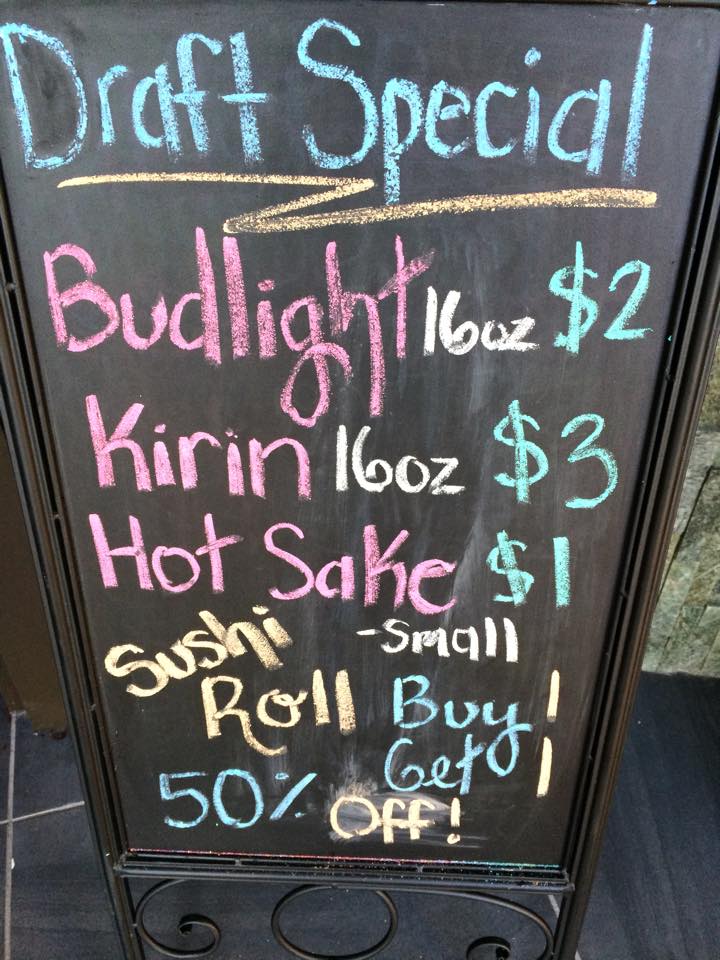 Draft Special
Budlight 16oz $2
Kirin 16oz $3
Hot Sake $1
-small
Sushi
Roll Buy 1
Get 1
50% Off!